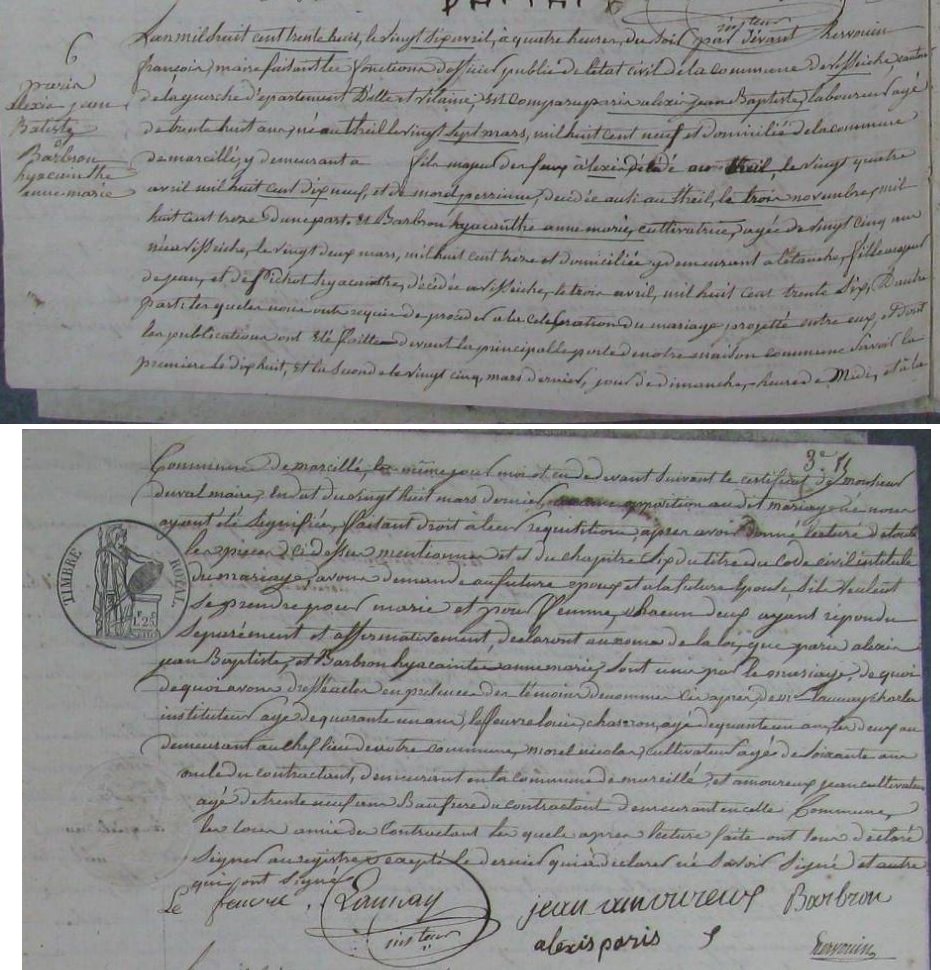 6
paris
alexis jean
Batiste
&
Barbron
hyacinthe
anne-marie
L'an mil huit cent trente huit, le vingt six avril, à quatre heures, du soir par devant hervouin
françois, maire faisant les fonctions d'officier public de l'état civil de la commune de visseiche, canton
de la guerche d'épartement D'ille et vilaine, Est comparu paris alexis jean Baptiste, laboureur agé
de trente huit ans, né au theil le vingt sept mars, mil huit cent neuf et domicilié de la commune
de marcillé, y demeurant a fils majeur des feux alexis décédé au theil, le vingt quatre
avril mil huit cent dix neuf, et de morel perrinne, decédée aussi au theil, le trois novembre, mil
huit cent treze d'une part. Et Barbron hyacinthe anne marie, cultivatrice, agée de vingt cinq ans
née a visseiche, le vingt deux mars, mil huit cent treze et domiciliée y demeurant a l'étanche, fille majeur
de jean, et de Pichot hyacinthe, décédée a visseiche, le trois avril, mil huit cent trente six, D'autre
part; les quels nous ont requis de proceder a la celebration du mariage projetté entre eux, et dont
les publications ont été faittes devant la principalle porte de notre maison commune Savoir la
première le dix huit, et la seconde le vingt cinq, mars dernier, jour de dimanche, heures de Midi, et à la
3e. f
Commune de marcillé, les même jour moi et an ci devant suivant le certificat de monsieur
duval maire, En dat du vingt huit mars dernier, aucune opposition au dit mariage ne nous
ayant été signifiée, faisant droit à leur requisition, apres avoir donné lecture de toute
les pieces ci dessus mentionnes et du chapitre six du titre du Code civil intitule
TIMBRE ROYAL
1F. 25
du mariage, avons demandé au future epoux et a la future Epouse, S'il veulent
se prendre pour marie et pour femme, chacun d'eux ayant répondu
séparément et affirmativement, déclarons au nome de la loi, que paris alexis
jean Baptiste, et Barbron hyacainte anne marie, sont unis par le mariage, de quoi
de quoi avons dressé acte, en présence des témoins denommé ci apres, de mr Launay charles
instituteur agé de quarante un ans, lefeuvre louis, agé de quarante un ans, les deux
demeurant au chef lieu de notre commune, morel nicolas, cultivateur agés de soixante ans
oncle du contractant, demeurant en la commune de marcillé, et amoureux jean cultivateur
agé de trente neuf ans Beau frere du contractant demeurant en cette Commune,
les tous amie des contractant les quels apres lecture faite ont tous déclaré
signer au registre excepté le dernier qui a déclarer ne savoir signé et autre
qui ont signé
Le feuvre. Launay jean amoureux Barbron
insteur alexis paris hervouin